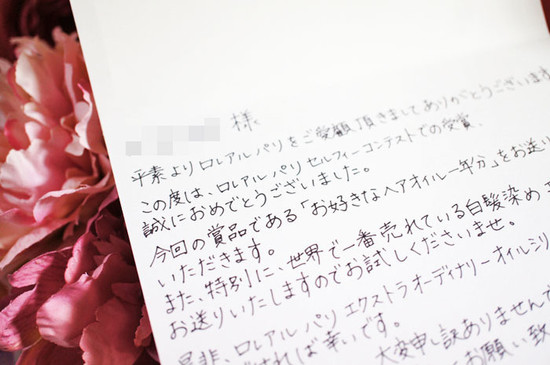 様
平素よりロレアルパリをご愛顧頂きましてありがとうございま
この度は、ロレアルパリセルフィーコンテストでの受賞、
誠におめでとうございました。
今回の賞品である「お好きなヘアオイル一年分」をお送り
いただきます。
また、特別に、世界で一番売れている白髪染め
お送りいたしますのでお試しくださいませ。
是非、ロレアルパリエクストラオーディナリーオイルシリ
ければ幸いです。
大変申し訳ありません
お願い致